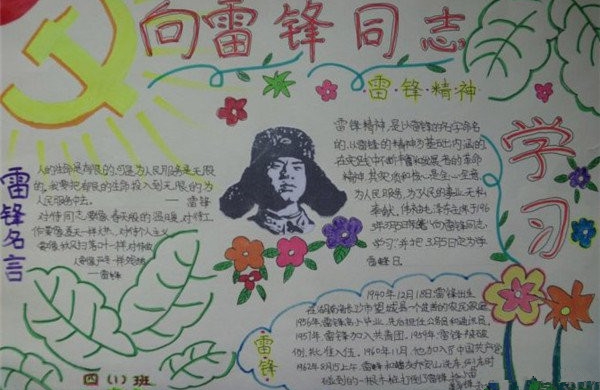 向雷锋同志
学习
雷锋名言
人的生命是有限的,可是为人民服务是无限
的,我要把有限的生命投入到无限的为
人民服务中去。
——雷锋
对待同志要像春天般的温暖,对待工
作要像夏天一样火热,对待个人主义
要像秋风扫落叶一样,对待敌
人要像严冬一样
——雷锋
雷·锋·精·神
雷锋精神,是以雷锋的名字命名
的,以雷锋的精神为基本内涵的
在实践中不断丰富和发展着的革命
精神,其实质和核心是全心全意
为人民服务,为了人民的事业无私
奉献。
3月5日
学习,并把3月5日定为学
雷锋日。
雷·锋
1940年12月18日雷锋出生
在湖南省长沙市望城县一个贫苦的农民家庭
1956年,雷锋高小毕业,先后担任公务员和通讯员。
1957年雷锋加入共青团。
1960年11月,他加入了中国共产党
1962年8月15日,雷锋和
四(1)班